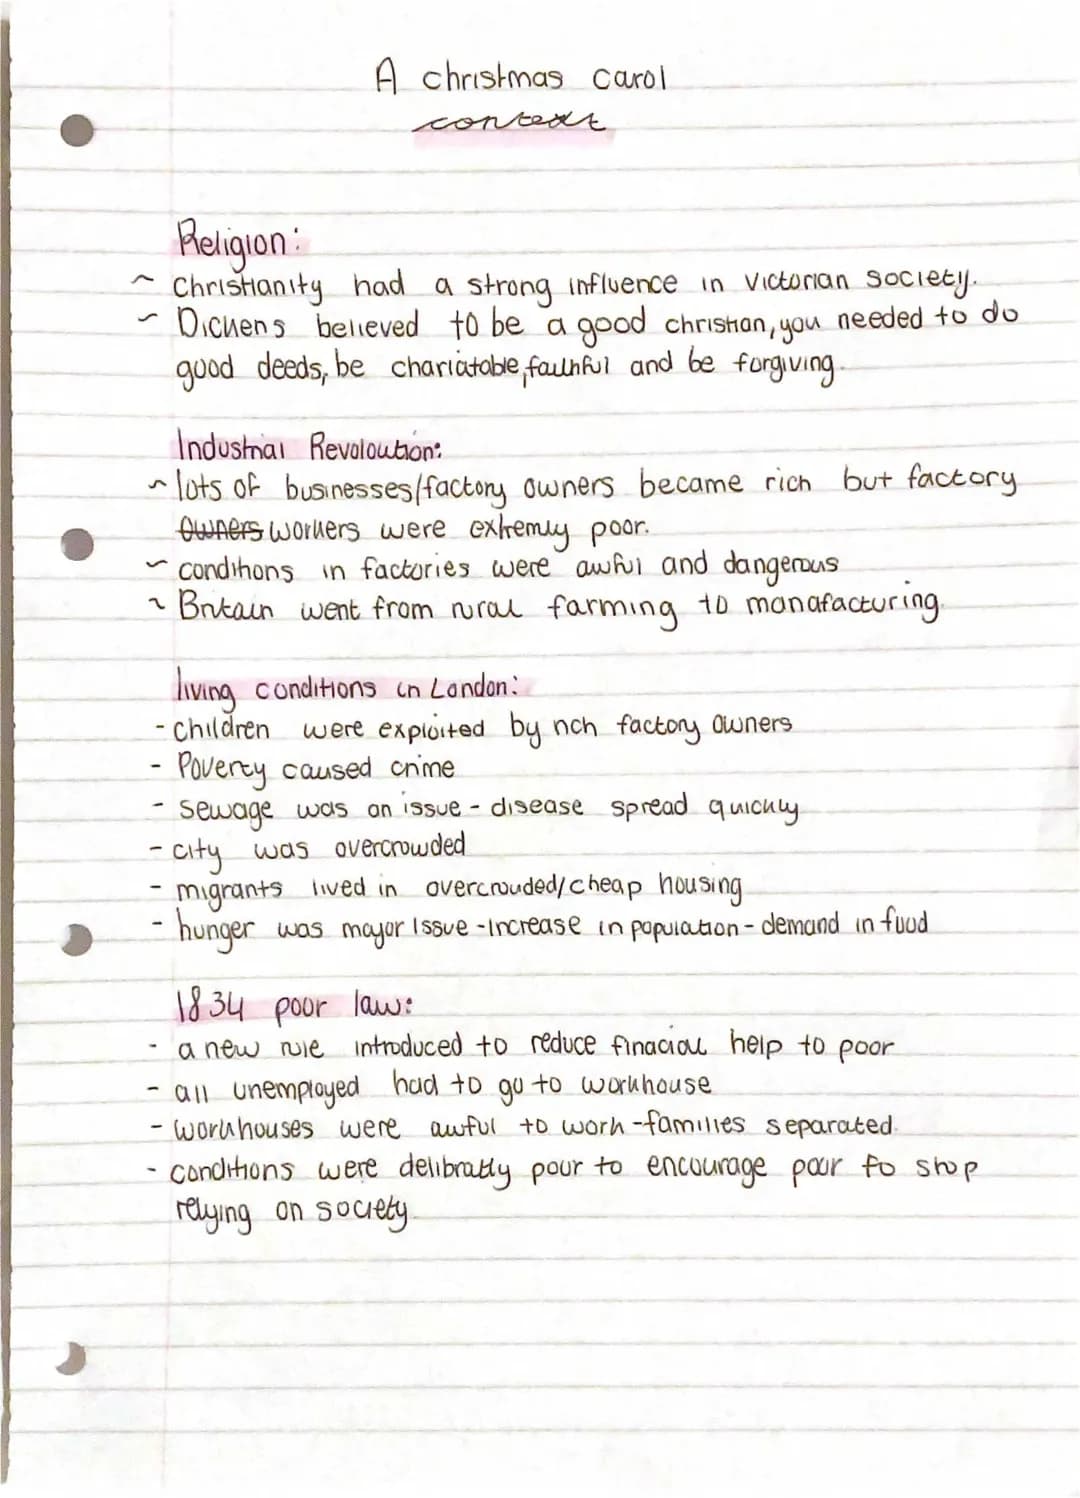 A christmas carol
context
Religion:
~ Christianity had a strong influence in Victorian society.
~ Dickens believed to be a good christian, you needed to do
good deeds, be chariatable, faithful and be forgiving.
Industrial Revoloution:
~ lots of businesses/factory owners became rich but factory
owners workers were extremly poor.
~ conditions in factories were awful and dangerous
~ Britain went from rural farming to manafacturing.
living conditions in London:
- children were exploited by rich factory owners
- Poverty caused crime
- sewage was an issue - disease spread quickly
- city was overcrowded
- migrants lived in overcrouded/cheap housing
- hunger was mayor issue - increase in population - demand in food
1834 poor law:
- a new rule introduced to reduce finacial help to poor
- all unemployed had to go to workhouse
- workhouses were awful to work - families separated.
- conditions were delibratly pour to encourage poor to stop
relying on society.